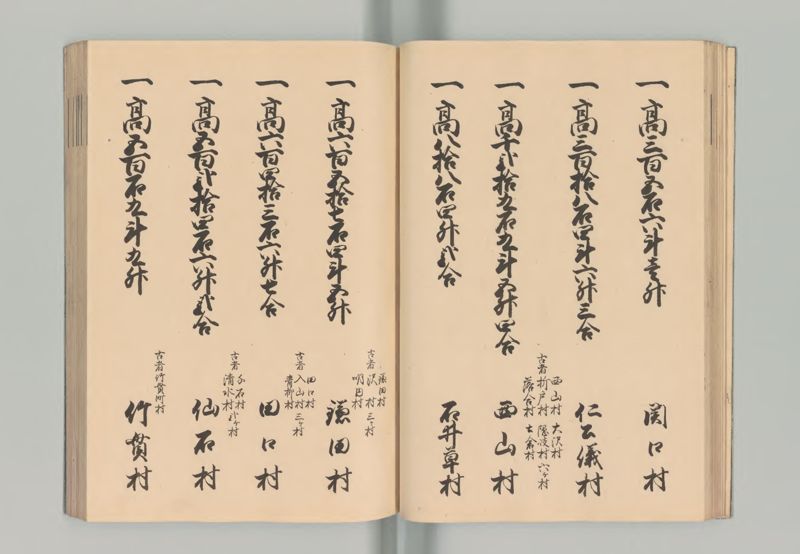 一高三百五石六斗壱升
関口村
一高三百拾八石四斗六升三合
仁公儀村
一高千弐拾九石九斗五升四合
古者
西山村 大沢村
折戸村 隠後村 六ヶ村
落合村 土倉村
西山村
一高八拾八石四升弐合
石井草村
一高六百五拾七石四斗五升
古者
鎌田村
沢村 三ヶ村
明田村
鎌田村
一高六百四拾三石六升七合
古者
田口村
入山村 三ヶ村
青柳村
田口村
一高五百弐拾四石六升弐合
古者
仙石村
清水村 弐ヶ村
仙石村
一高五百石九斗九升
古者竹貫町村
竹貫村